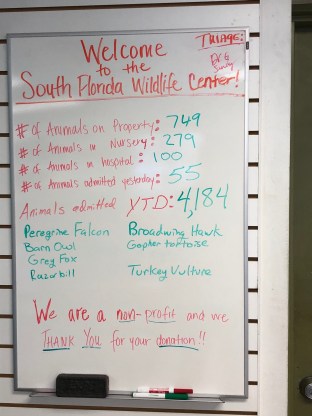 Welcome
to the
South Florida Wildlife Center!
TRIAGE:
# of Animals on Property: 749
# of Animals in Nursery: 279
# of Animals in hospital: 100
# of Animals admitted yesterday: 55
Animals admitted YTD: 4,184
Peregrine Falcon Broadwing Hawk
Barn Owl Gopher tortoise
Grey Fox
Razorbill Turkey Vulture
We are a non-profit and we
THANK YOU for your donation!!